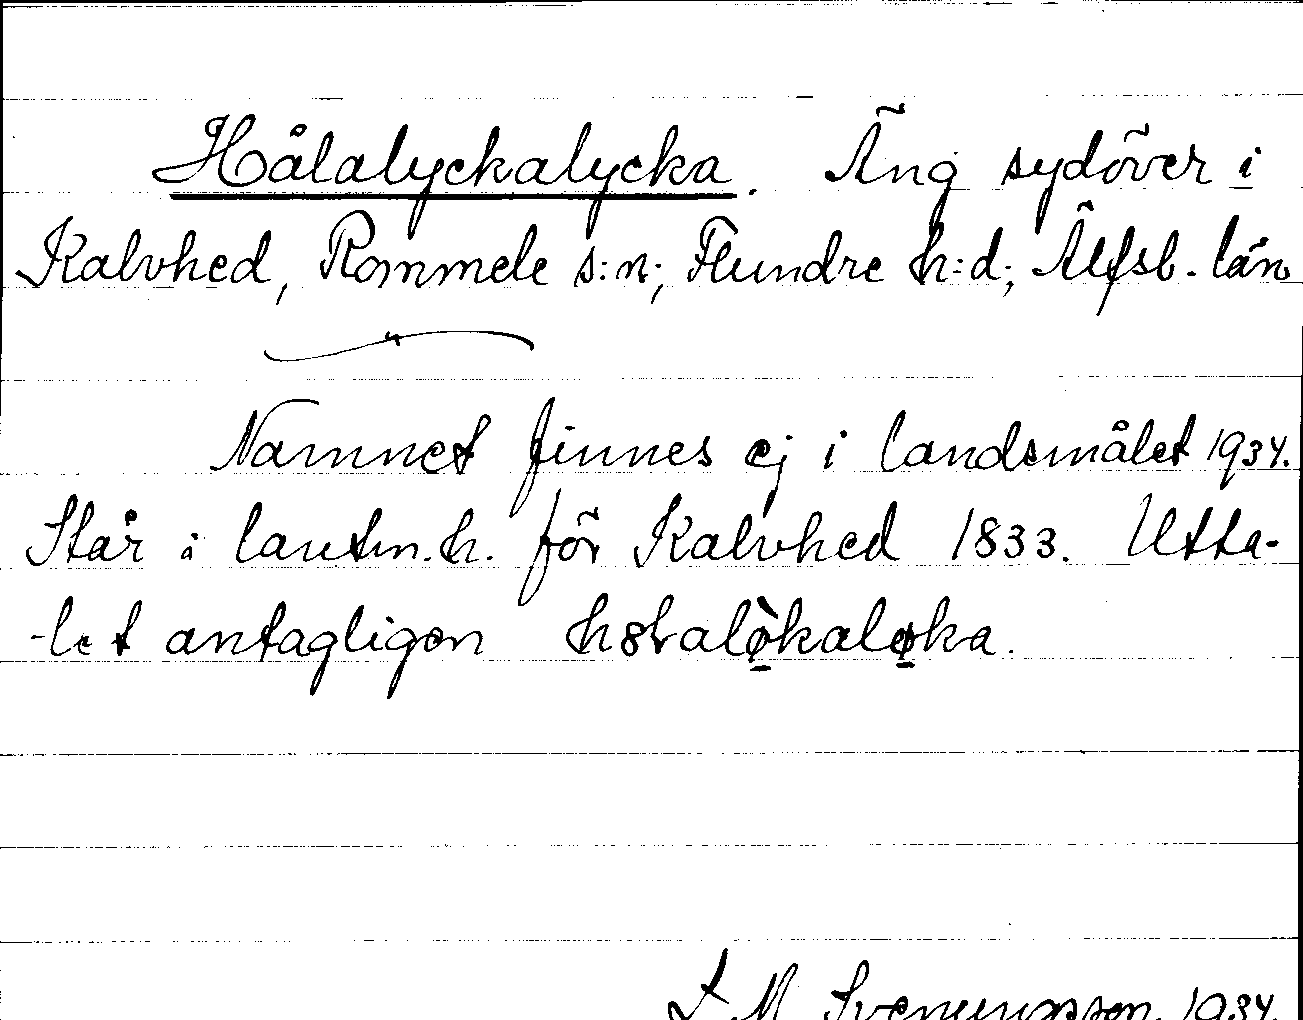 Hålalyckalycka. Äng sydöver i
Kalvhed, Rommele s:n; Flundre h:d; Älfsb. län
Namnet finnes ej i landsmålet 1934.
Står i lantm.h. för Kalvhed 1833. Utta-
-let antagligen
1934.